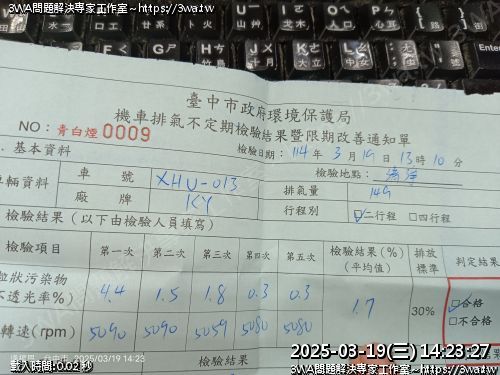 3WA問題解決專家工作室~https://3wa.tw
3WA問題解決專家工作室~https://3wa.tw
臺中市政府環境保護局
機車排氣不定期檢驗結果暨限期改善通知單
NO：青白煙0009
檢驗日期：114年3月19日13時10分
、基本資料
檢驗地點：
車輛資料
車 號
XHU-013
排氣量
149
廠 牌
KY
行程別
☑二行程 □四行程
檢驗結果（以下由檢驗人員填寫）
檢驗項目 第一次 第二次 第三次 第四次 第五次 檢驗結果(%)(平均值) 排放標準 判定結果
粒狀污染物
不透光率%) 4.4 1.5 1.8 0.3 0.3 1.7 30% ☑合格
□不合格
轉速(rpm) 5090 5090 5059 5080 5080
檢驗結果
2025/03/19 14:23
載入時間:0.02秒
2025-03-19(三) 14:23:27
3WA問題解決專家工作室~https://3wa.tw